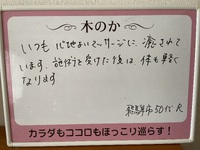 木のか
いつも 心地よいマッサージに 癒されて
います。施術を受けた後は、体も軽く
なります
飛騨市 50代 R
カラダもココロもほっこり巡らす！